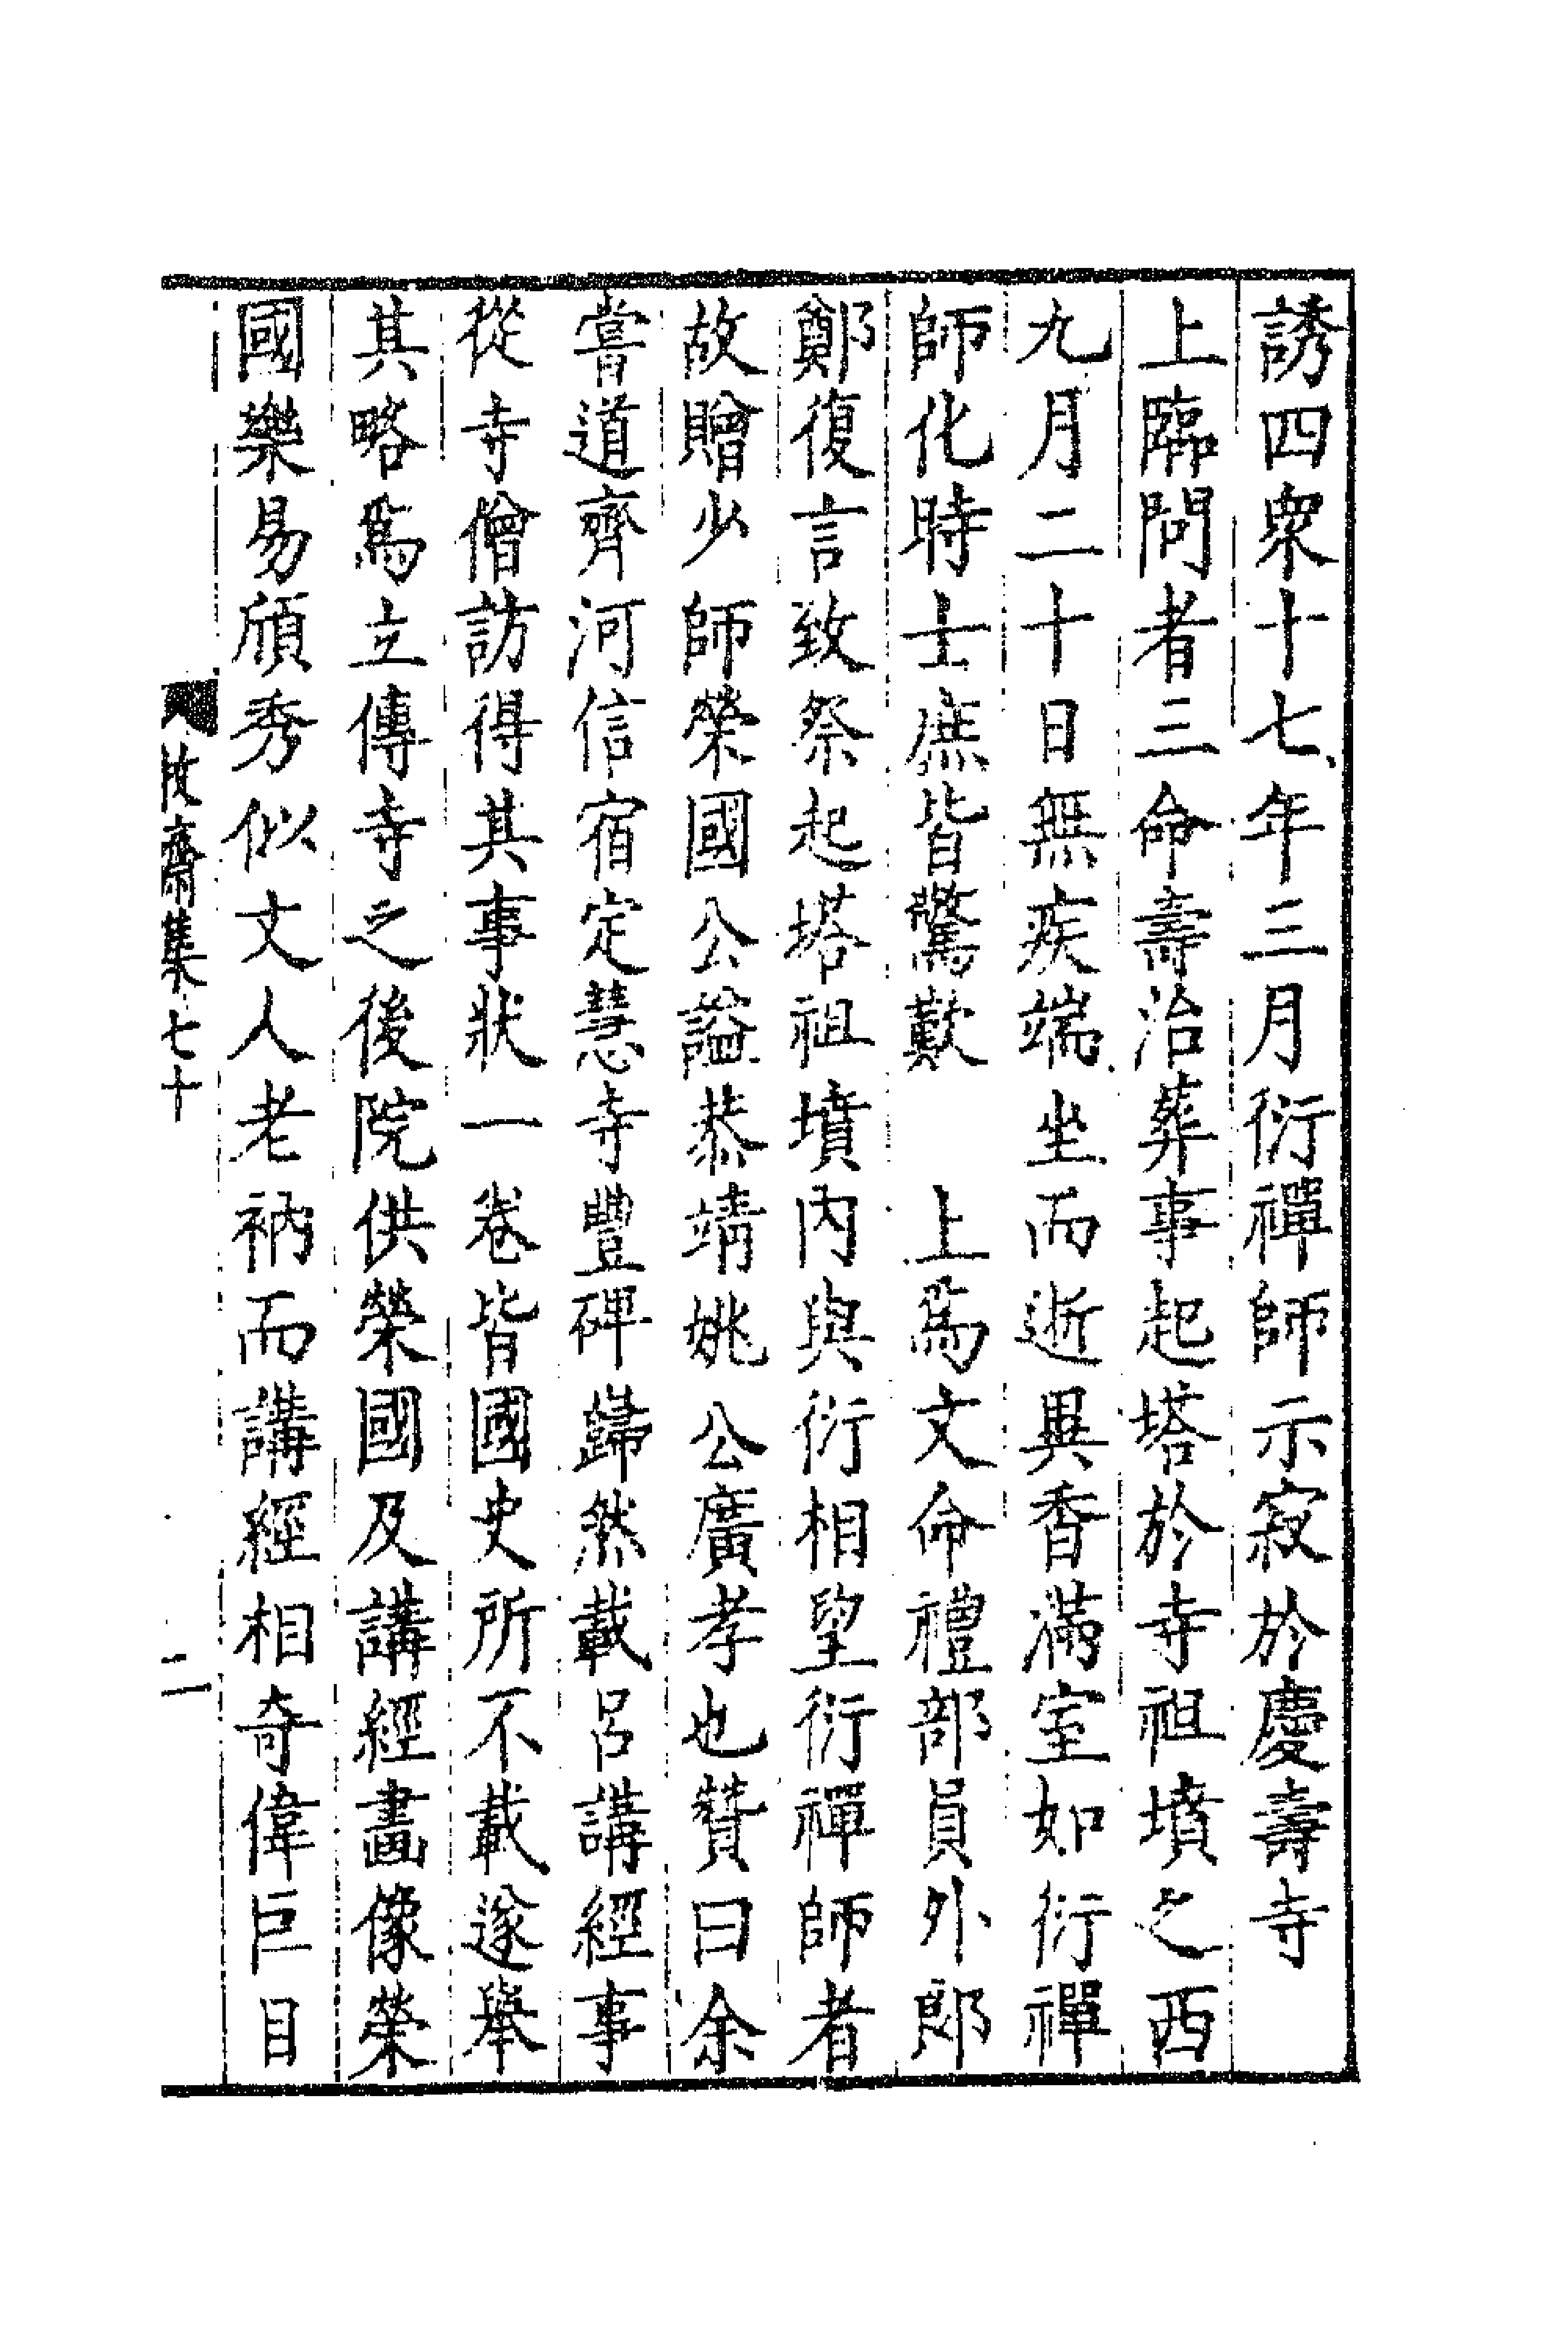 誘四衆十七年三月衍禪師示寂於慶壽寺
上臨問者三命壽治葬事起塔於寺祖墳之西
九月二十日無疾端坐而逝異香滿室如衍禪
師化時士庶皆驚歎　上爲文命禮部員外郎
鄭復言致祭起塔祖墳內與衍相望衍禪師者
故贈少師榮國公謚恭靖姚公廣孝也贊曰余
嘗道齊河信宿定慧寺豐碑歸然載呂講經事
從寺僧訪得其事狀一卷皆國史所不載遂舉
其略爲立傳寺之後院供榮國及講經畫像榮
國樂易頎秀似文人老衲而講經相奇偉巨目
牧齋集七十　二